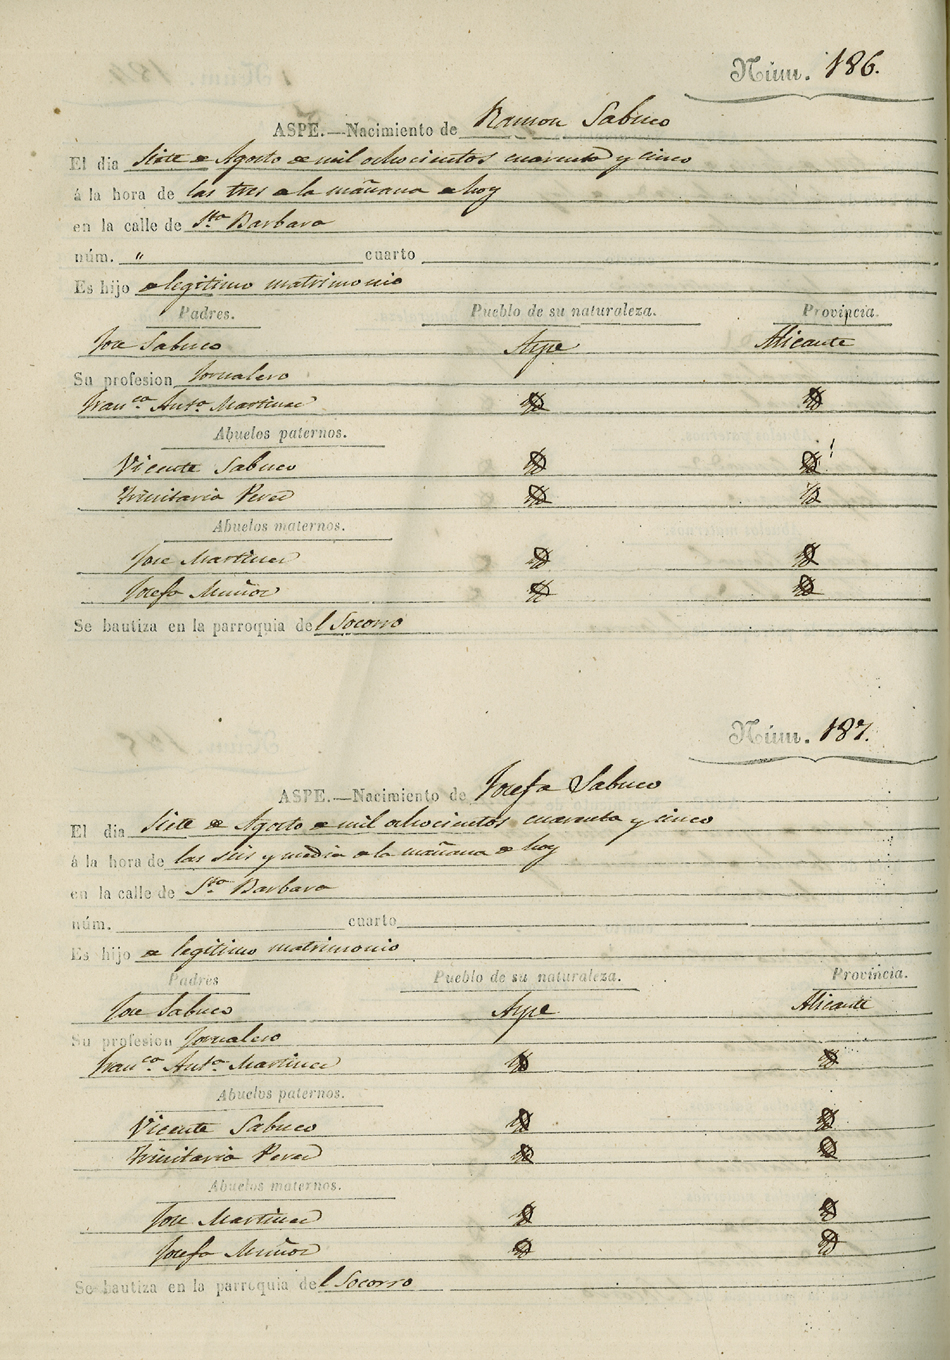 Núm. 186.
ASPE.—Nacimiento de Ramon Sabuco
El dia Siete de Agosto de mil ochocientos cuarenta y cinco
á la hora de las tres de la mañana de hoy
en la calle de Sta Barbara
núm. " cuarto
Es hijo de legitimo matrimonio
Padres. Pueblo de su naturaleza. Provincia.
Jose Sabuco Aspe Alicante
Su profesion Jornalero
Franca Anta Martinez id id
Abuelos paternos.
Vicente Sabuco id id
Trinitaria Perez id id
Abuelos maternos.
Jose Martinez id id
Josefa Muñoz id id
Se bautiza en la parroquia del Socorro
Núm. 187.
ASPE.—Nacimiento de Josefa Sabuco
El dia Siete de Agosto de mil ochocientos cuarenta y cinco
á la hora de las seis y media de la mañana de hoy
en la calle de Sta Barbara
núm. cuarto
Es hijo de legitimo matrimonio
Padres Pueblo de su naturaleza. Provincia.
Jose Sabuco Aspe Alicante
Su profesion Jornalero
Franca Anta Martinez id id
Abuelos paternos.
Vicente Sabuco id id
Trinitaria Perez id id
Abuelos maternos.
Jose Martinez id id
Josefa Muñoz id id
Se bautiza en la parroquia del Socorro